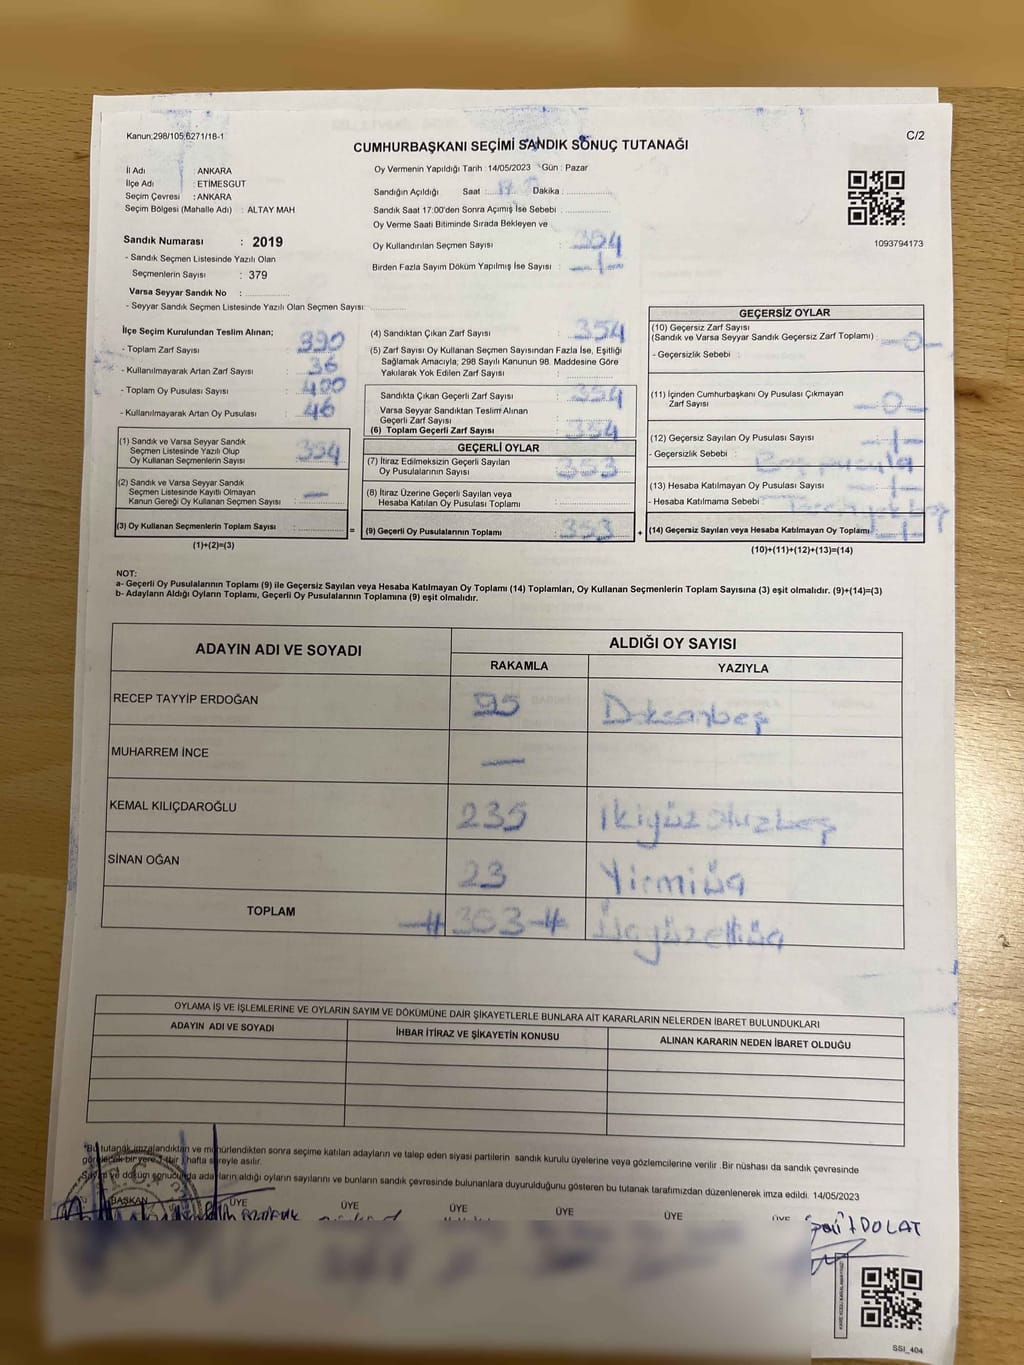 Kanun;298/105,6271/18-1
C/2
CUMHURBAŞKANI SEÇİMİ SANDIK SONUÇ TUTANAĞI
İl Adı : ANKARA
İlçe Adı : ETİMESGUT
Seçim Çevresi : ANKARA
Seçim Bölgesi (Mahalle Adı) : ALTAY MAH
Oy Vermenin Yapıldığı Tarih : 14/05/2023 Gün : Pazar
Sandığın Açıldığı Saat : Dakika :
Sandık Saat 17:00'den Sonra Açımış İse Sebebi :
Oy Verme Saati Bitiminde Sırada Bekleyen ve
Oy Kullandırılan Seçmen Sayısı : 354
Birden Fazla Sayım Döküm Yapılmış İse Sayısı : -1-
1093794173
Sandık Numarası : 2019
- Sandık Seçmen Listesinde Yazılı Olan
Seçmenlerin Sayısı : 379
Varsa Seyyar Sandık No :
- Seyyar Sandık Seçmen Listesinde Yazılı Olan Seçmen Sayısı:
İlçe Seçim Kurulundan Teslim Alınan;
- Toplam Zarf Sayısı : 390
- Kullanılmayarak Artan Zarf Sayısı : 36
- Toplam Oy Pusulası Sayısı : 400
- Kullanılmayarak Artan Oy Pusulası : 46
(1) Sandık ve Varsa Seyyar Sandık
Seçmen Listesinde Yazılı Olup
Oy Kullanan Seçmenlerin Sayısı : 354
(2) Sandık ve Varsa Seyyar Sandık
Seçmen Listesinde Kayıtlı Olmayan
Kanun Gereği Oy Kullanan Seçmen Sayısı : —
(3) Oy Kullanan Seçmenlerin Toplam Sayısı : =
(1)+(2)=(3)
(4) Sandıktan Çıkan Zarf Sayısı : 354
(5) Zarf Sayısı Oy Kullanan Seçmen Sayısından Fazla İse, Eşitliği
Sağlamak Amacıyla; 298 Sayılı Kanunun 98. Maddesine Göre
Yakılarak Yok Edilen Zarf Sayısı :
Sandıkta Çıkan Geçerli Zarf Sayısı : 354
Varsa Seyyar Sandıktan Teslim Alınan
Geçerli Zarf Sayısı :
(6) Toplam Geçerli Zarf Sayısı : 354
GEÇERLİ OYLAR
(7) İtiraz Edilmeksizin Geçerli Sayılan
Oy Pusulasının Sayısı : 353
(8) İtiraz Üzerine Geçerli Sayılan veya
Hesaba Katılan Oy Pusulası Toplamı :
(9) Geçerli Oy Pusulalarının Toplamı : 353 +
GEÇERSİZ OYLAR
(10) Geçersiz Zarf Sayısı
(Sandık ve Varsa Seyyar Sandık Geçersiz Zarf Toplamı) : -0-
- Geçersizlik Sebebi :
(11) İçinden Cumhurbaşkanı Oy Pusulası Çıkmayan
Zarf Sayısı : -0-
(12) Geçersiz Sayılan Oy Pusulası Sayısı : -1-
- Geçersizlik Sebebi : Boş pusula
(13) Hesaba Katılmayan Oy Pusulası Sayısı : -1-
- Hesaba Katılmama Sebebi :
(14) Geçersiz Sayılan veya Hesaba Katılmayan Oy Toplamı : -1-
(10)+(11)+(12)+(13)=(14)
NOT:
a- Geçerli Oy Pusulalarının Toplamı (9) ile Geçersiz Sayılan veya Hesaba Katılmayan Oy Toplamı (14) Toplamları, Oy Kullanan Seçmenlerin Toplam Sayısına (3) eşit olmalıdır. (9)+(14)=(3)
b- Adayların Aldığı Oyların Toplamı, Geçerli Oy Pusulalarının Toplamına (9) eşit olmalıdır.
ADAYIN ADI VE SOYADI
ALDIĞI OY SAYISI
RAKAMLA YAZIYLA
RECEP TAYYİP ERDOĞAN 95 Doksanbeş
MUHARREM İNCE —
KEMAL KILIÇDAROĞLU 235 İkiyüzotuzbeş
SİNAN OĞAN 23 Yirmiüç
TOPLAM -#353-# Üçyüzelliüç
OYLAMA İŞ VE İŞLEMLERİNE VE OYLARIN SAYIM VE DÖKÜMÜNE DAİR ŞİKAYETLERLE BUNLARA AİT KARARLARIN NELERDEN İBARET BULUNDUKLARI
ADAYIN ADI VE SOYADI İHBAR İTİRAZ VE ŞİKAYETİN KONUSU ALINAN KARARIN NEDEN İBARET OLDUĞU
*Bu tutanak imzalandıktan ve mühürlendikten sonra seçime katılan adayların ve talep eden siyasi partilerin sandık kurulu üyelerine veya gözlemcilerine verilir .Bir nüshası da sandık çevresinde
görülecek bir yere 1 (bir) hafta süreyle asılır.
Sayım ve döküm sonucunda adayların aldığı oyların sayılarını ve bunların sandık çevresinde bulunanlara duyurulduğunu gösteren bu tutanak tarafımızdan düzenlenerek imza edildi. 14/05/2023
BAŞKAN ÜYE ÜYE ÜYE ÜYE ÜYE ÜYE
DOLAT
SSI_404